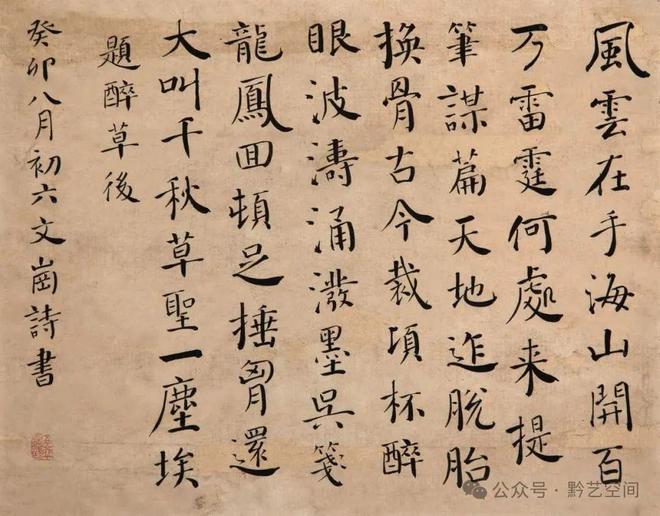 風雲在手海山開百
万雷霆何處来提
筆謀篇天地迮脱胎
換骨古今裁頃杯醉
眼波濤涌潑墨吳箋
龍鳳回頓足捶胷還
大叫千秋草聖一塵埃
題醉草後
癸卯八月初六文崗詩書
公众号·黔艺空间